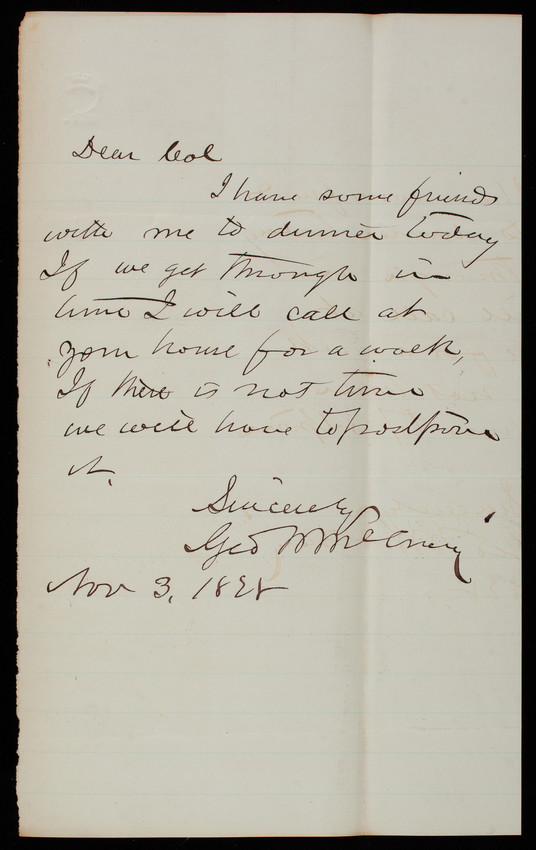 Dear Col
I have some friends
with me to dinner today
If we get through in
time I will call at
your house for a walk,
If there is not time
we will have to postpone
it.
Sincerely
Geo W
Nov 3, 1888